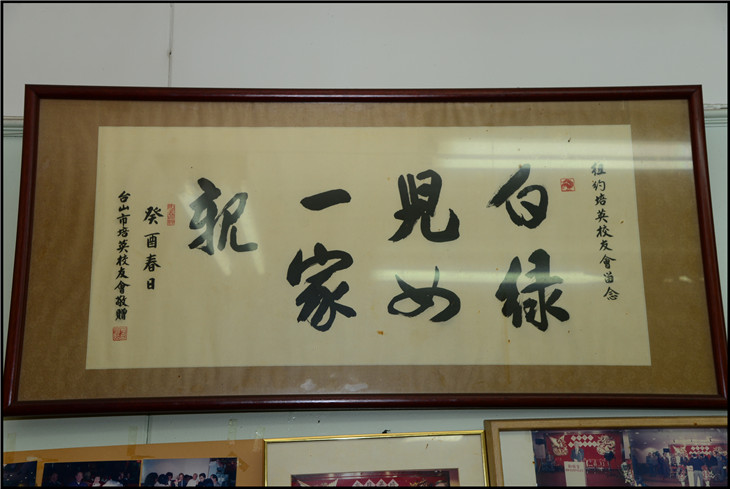 紐約培英校友會留念
白綠
見如
一家
親
癸酉春日
台山市培英校友會敬贈